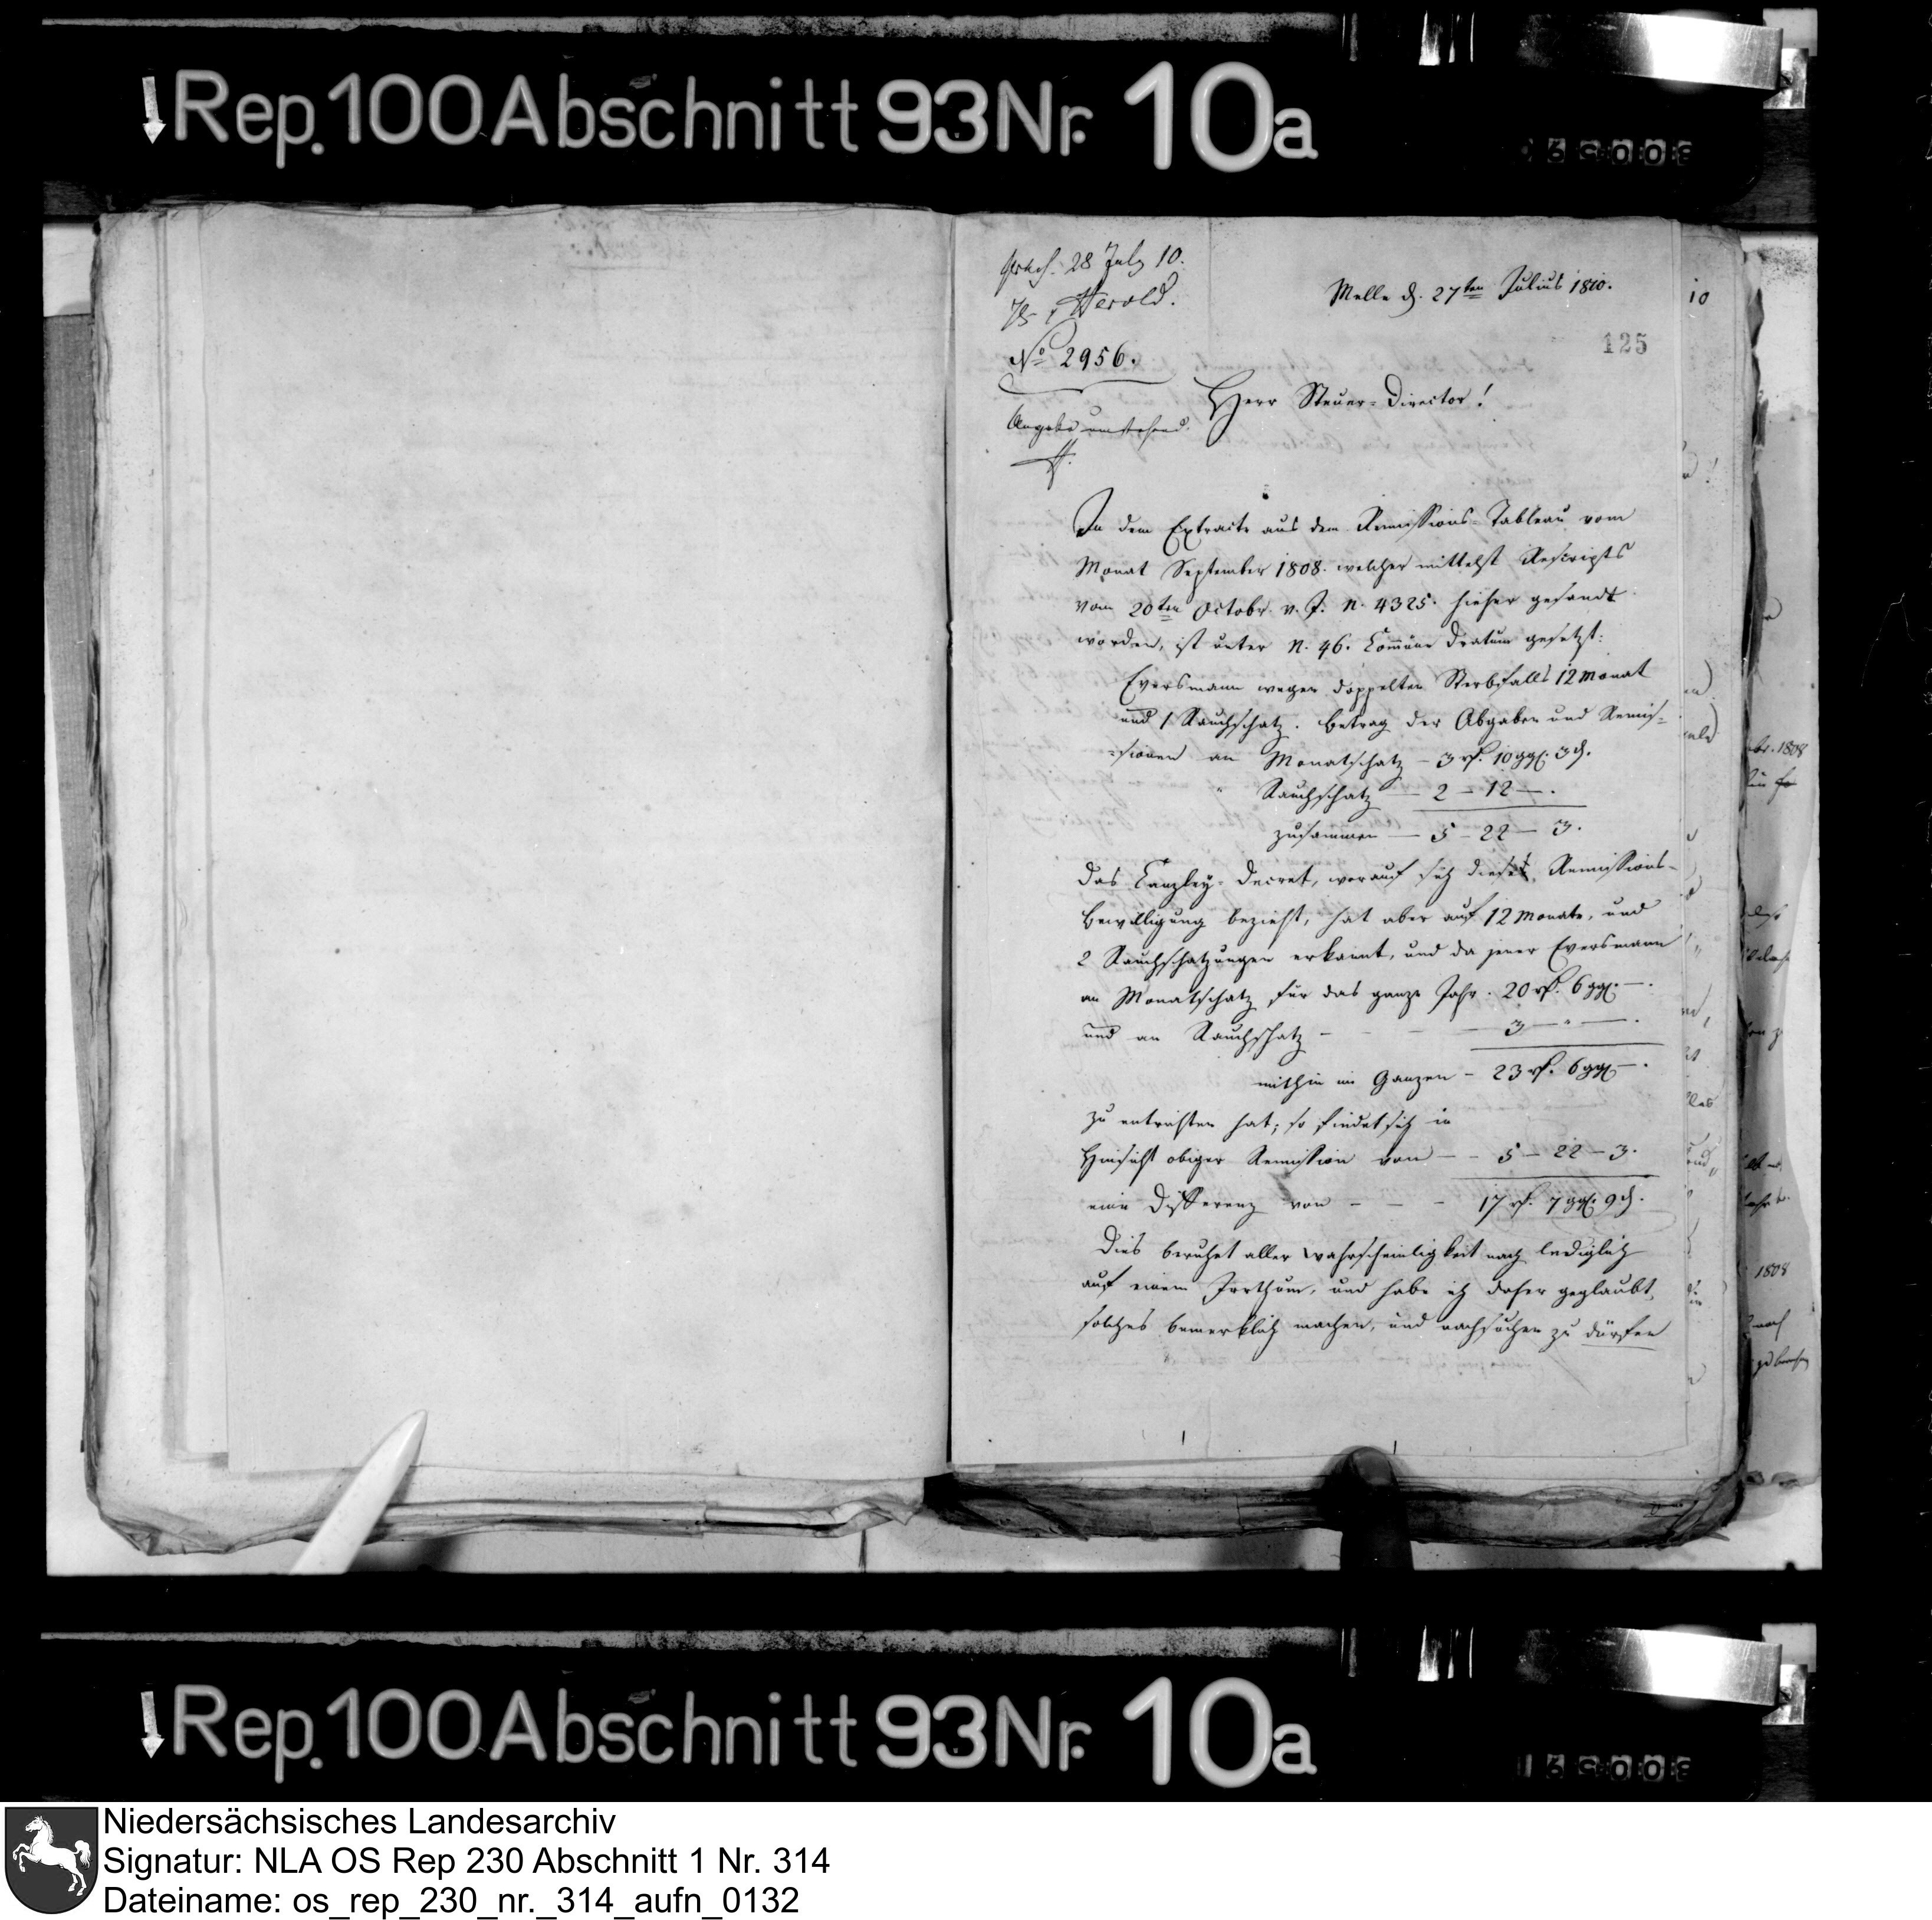 Rep. 100 Abschnitt 93 Nr. 10a
28 July 10.
Herold.
No 2956.
Angabe umstehend.
Melle d. 27ten Julius 1810.
125
Herr Steuer-Director!
In dem Extracte aus dem Remissions-Tableau vom
Monat September 1808. welcher mittelst Rescripts
vom 20ten Octobr. v. J. N. 4325. hieher gesandt
worden, ist unter N. 46. Commüne Dratum gesetzt:
Eversmann wegen doppelten Sterbfalls 12 Monat
und 1 Rauchschatz. Betrag der Abgaben und Remis-
-sionen an Monatschatz – 3 rt. 10 ggl. 3 d.
" Rauchschatz — 2 – 12 — .
zusammen — 5 – 22 – 3.
Das Canzley-Decret, worauf sich diese Remissions-
Bewilligung bezieht, hat aber auf 12 Monate, und
2 Rauchschatzungen erkannt, und da jener Eversmann
an Monatschatz für das ganze Jahr. 20 rt. 6 ggl. – .
und an Rauchschatz – – – – 3 — " — .
mithin im Ganzen – 23 rt. 6 ggl – .
zu entrichten hat; so findet sich in
Hinsicht obiger Remission von – – 5 – 22 – 3.
eine Differenz von – – – 17 rt. 7 ggl. 9 d.
Dies beruhet aller Wahrscheinligkeit nach lediglich
auf einem Irrthum, und habe ich daher geglaubt,
solches bemerklich machen, und nachsuchen zu dürfen
Rep. 100 Abschnitt 93 Nr. 10a
Niedersächsisches Landesarchiv
Signatur: NLA OS Rep 230 Abschnitt 1 Nr. 314
Dateiname: os_rep_230_nr._314_aufn_0132